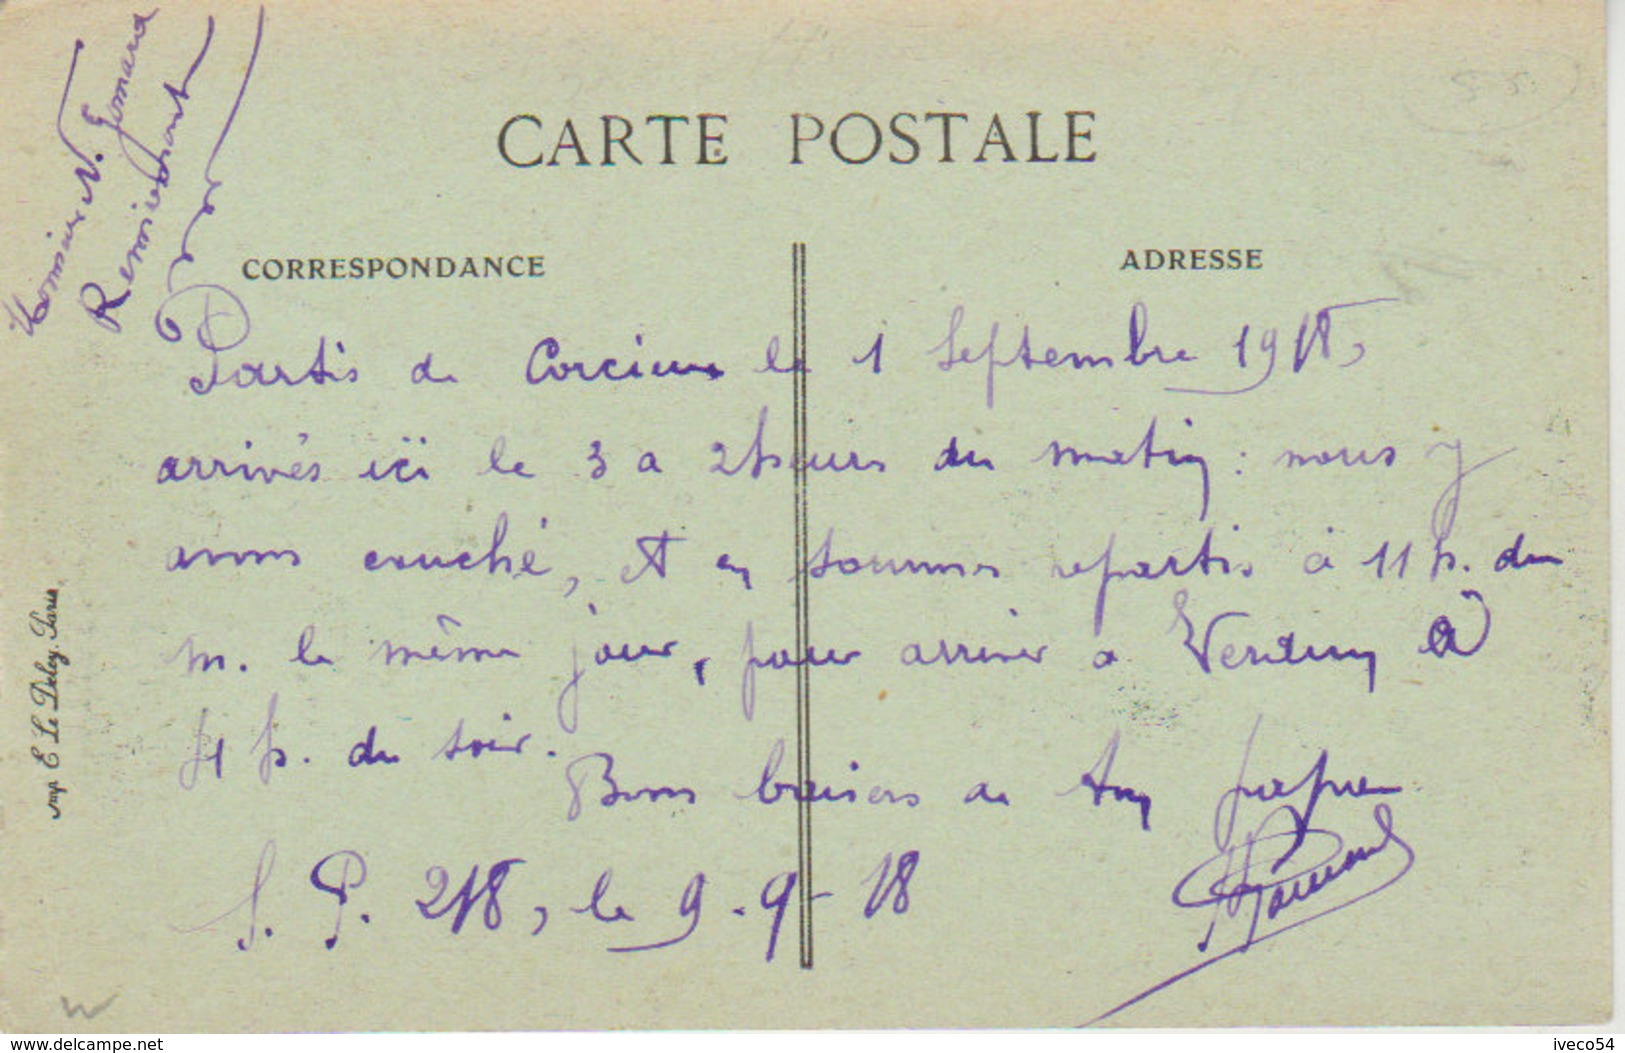 Monsieur N. Gomard
Remiremont
CARTE POSTALE
CORRESPONDANCE
ADRESSE
Partis de Corcieux le 1 Septembre 1918,
arrivés ici le 3 a 2 heures du matin : nous y
avons couché, et en sommes repartis à 11 h. du
m. le même jour, pour arriver a Verdun à
4 h. du soir.
Bons baisers de ton papa
Gomard
S. P. 218, le 9-9-18
Imp. E. Le Deley, Paris
www.delcampe.net
iveco54